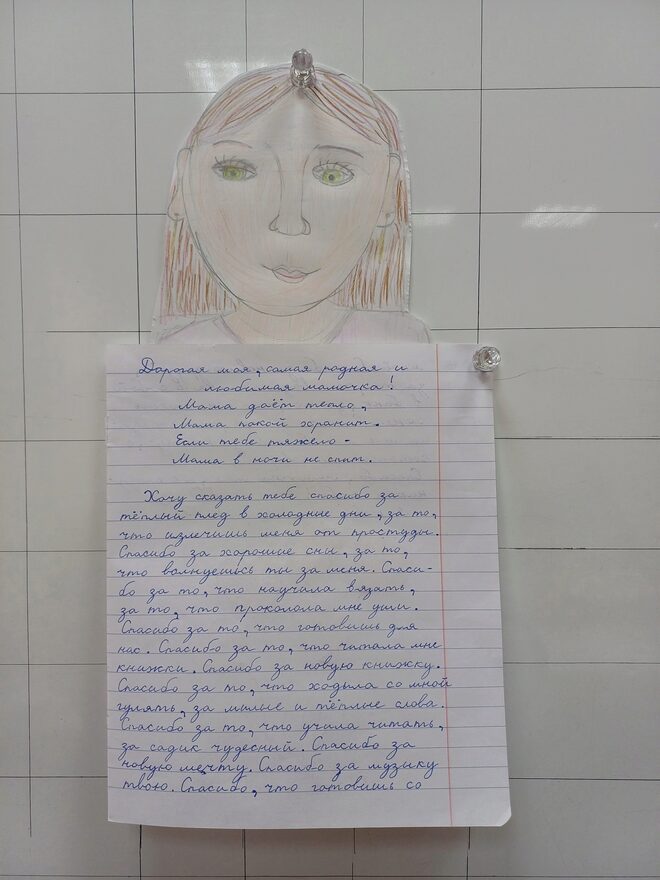 Дорогая моя, самая родная и
любимая мамочка!
Мама даёт тепло,
Мама покой хранит.
Если тебе тяжело -
Мама в ночи не спит.
Хочу сказать тебе спасибо за
тёплый плед в холодные дни, за то,
что излечишь меня от простуды.
Спасибо за хорошие сны, за то,
что волнуешься ты за меня. Спаси-
бо за то, что научила вязать,
за то, что проколола мне уши.
Спасибо за то, что готовишь для
нас. Спасибо за то, что читала мне
книжки. Спасибо за новую книжку.
Спасибо за то, что ходила со мной
гулять, за милые и тёплые слова.
Спасибо за то, что учила читать,
за садик чудесный. Спасибо за
новую мечту. Спасибо за музыку
твою. Спасибо, что готовишь со